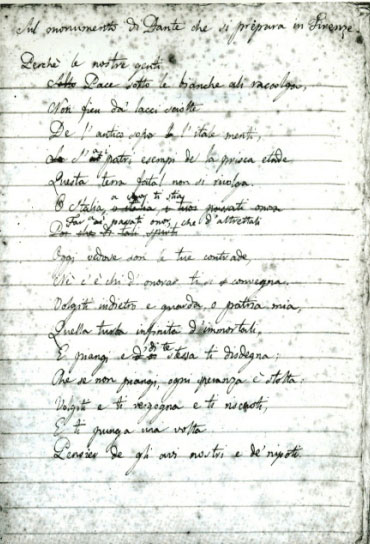 Sul monumento di Dante che si prepara in Firenze
Perchè le nostre genti
Pace sotto le bianche ali raccolga,
Non fien da' lacci sciolte
De l'antico sopor l'itale menti,
S'ai patri esempi de la prisca etade
Questa terra fatal non si rivolga.
O Italia, a cuor ti stia
Far ai passati onor, che d'altrettali
Oggi vedove son le tue contrade
Nè c'è chi d'onorar ti si convegna.
Volgiti indietro e guarda, o patria mia,
Quella infinita d'immortali,
E piangi e di te stessa ti disdegna;
Che se non piangi, ogni speranza è stolta:
Volgiti e ti vergogna e ti riscuoti,
E ti punga una volta
Pensier de gli avi nostri e de' nipoti.